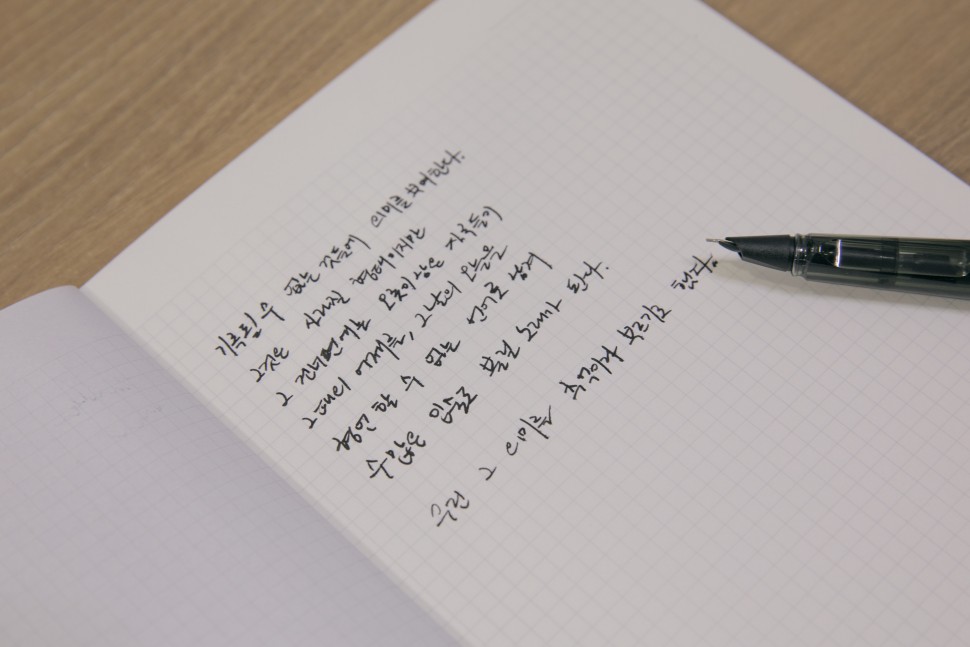 기록될 수 없는 것들에 의미를 부여한다.
그것은 사라진 형태이지만
그 건너편에는 오롯이 남은 기록들이
그때의 어제를, 그날의 오늘을
형언 할 수 없는 언어로 남겨
수많은 입술로 불릴 노래가 된다.
우린 그 의미를 추억이라 부르기로 했다.